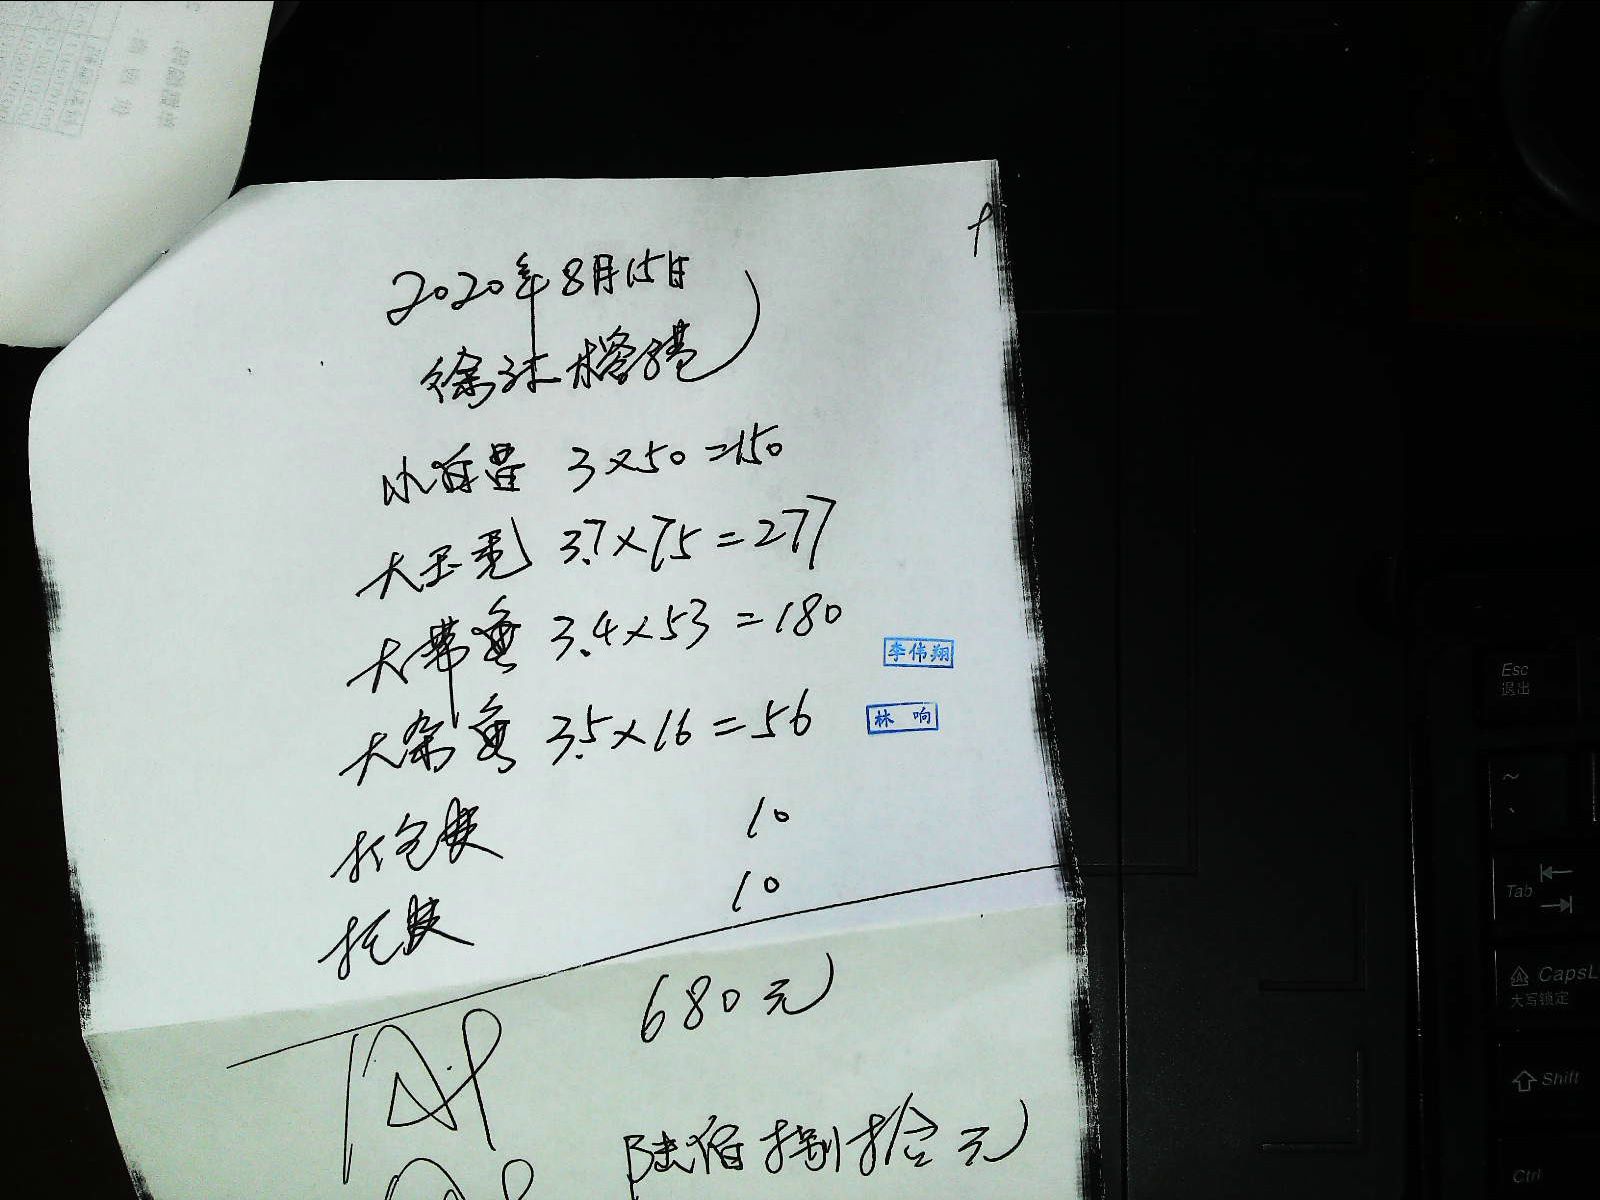 2020年8月15日
3×50=150
大玉禿 3.7×75=277
大带鱼 3.4×53=180
李伟翔
大杂鱼 3.5×16=56
林响
打包费 10
托费 10
680元
陆佰捌拾元
Esc
退出
~
Tab
CapsL
大写锁定
Shift
Ctrl